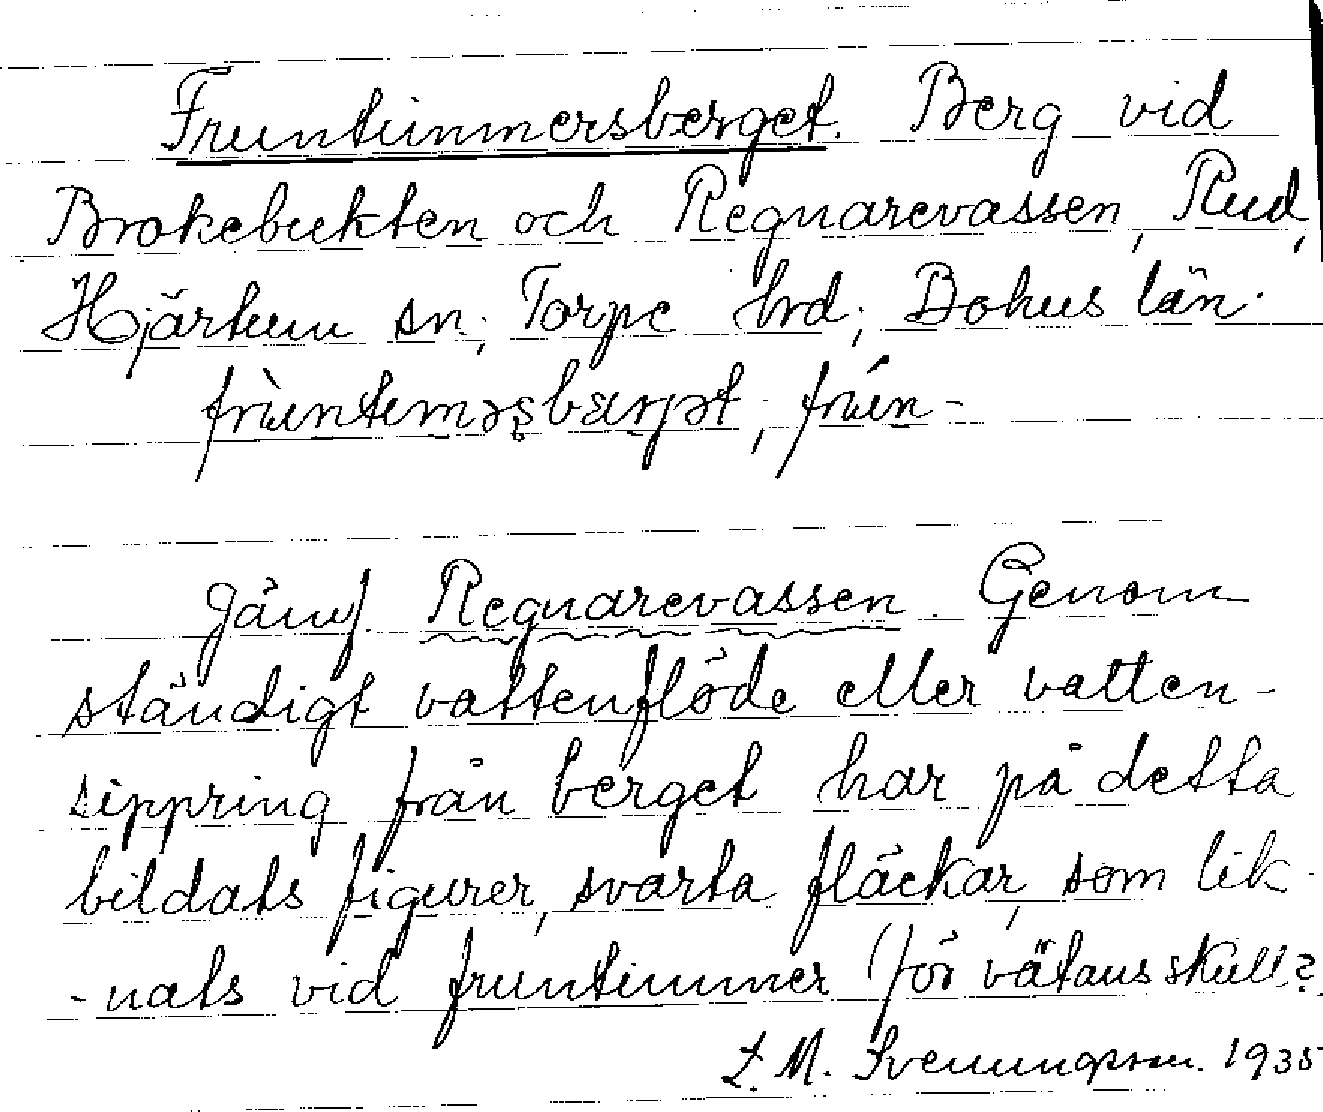 Fruntimmersberget. Berg vid
Brokebukten och Regnarevassen, Rud,
Hjärtum sn, Torpe hrd, Bohus län.
frùnteməs̥bærjət, frún-
Jämf. Regnarevassen. Genom
ständigt vattenflöde eller vatten-
sippring från berget har på detta
bildats figurer, svarta fläckar, som lik-
-nats vid fruntimmer (för vätans skull?
L. M. Svenungsson. 1935